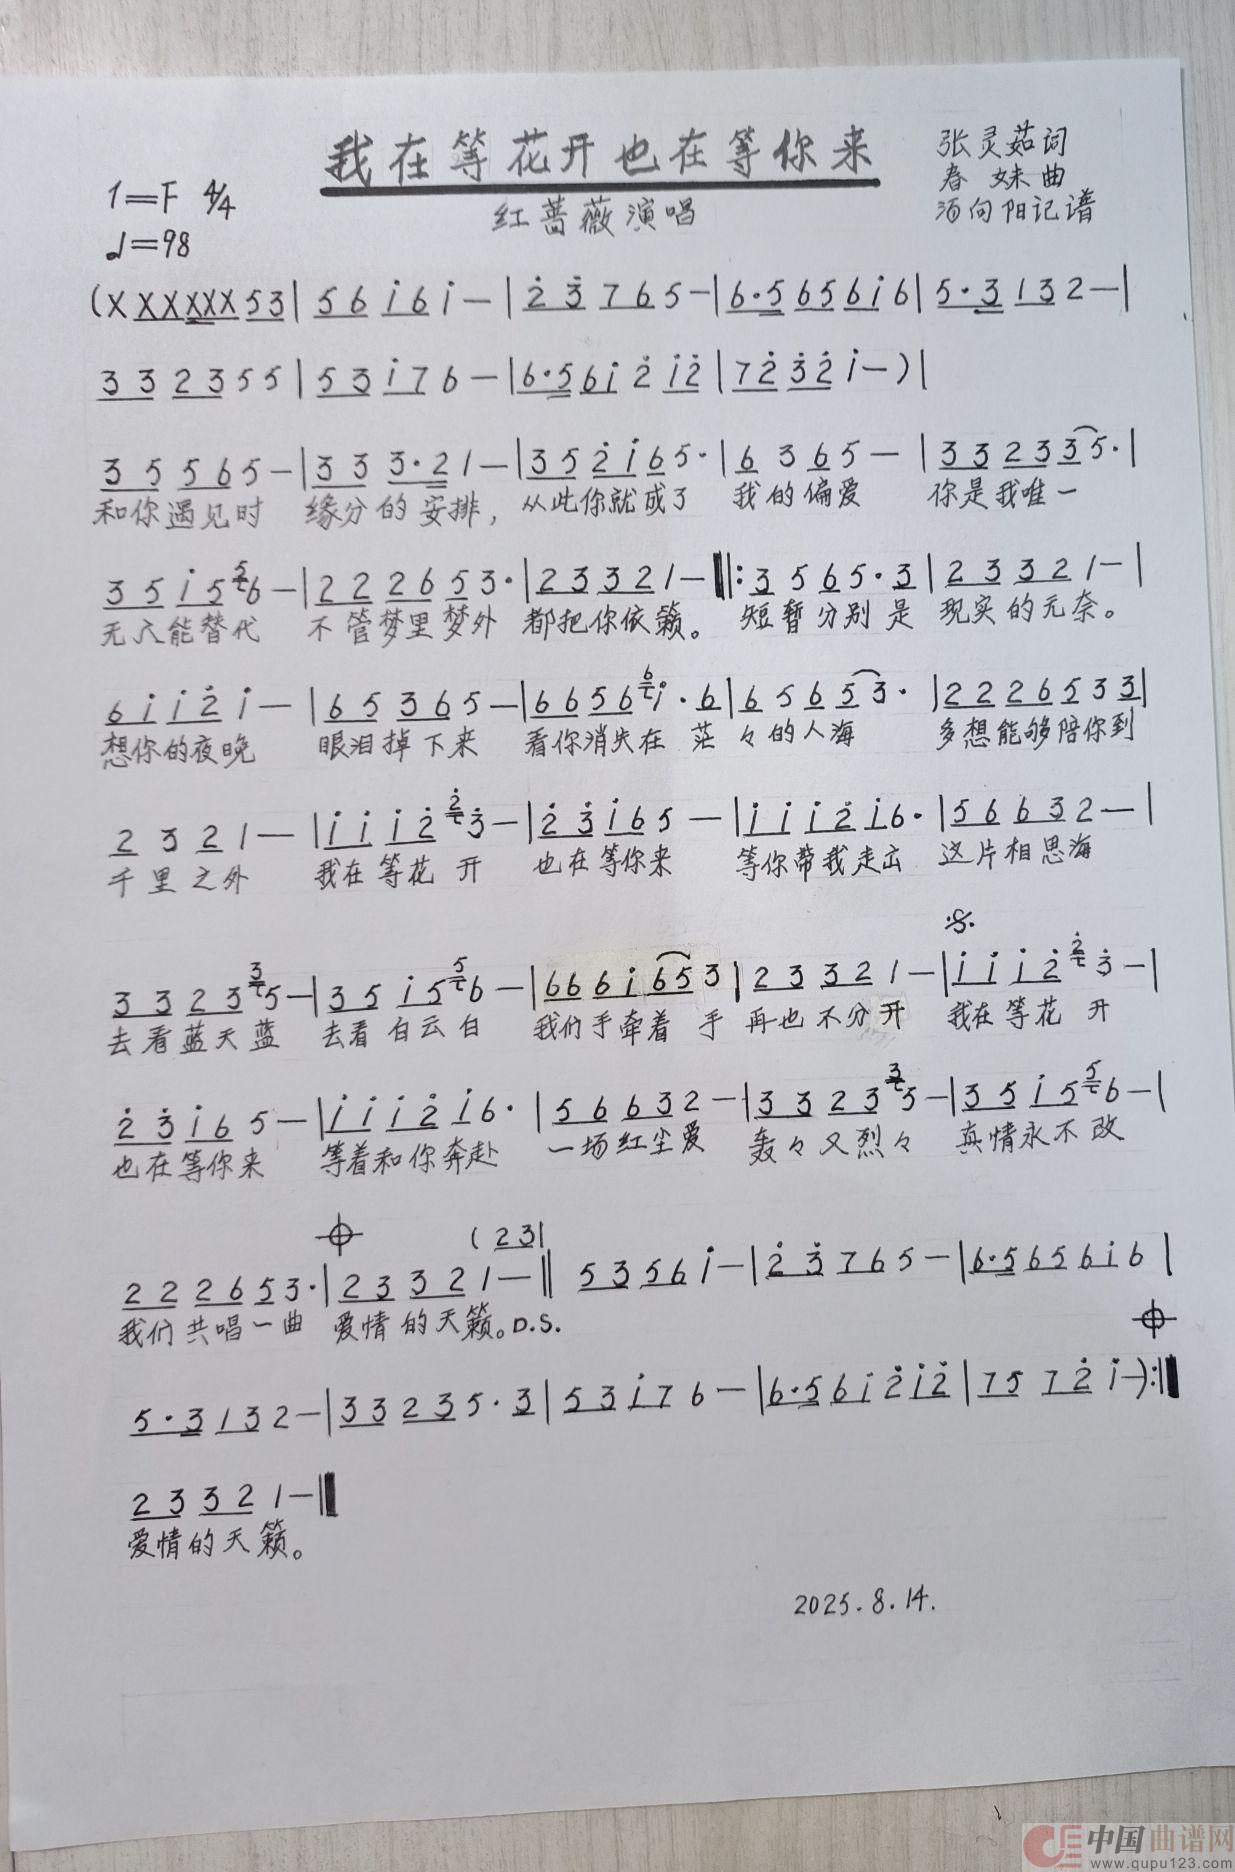 我在等花开也在等你来
张灵茹词
1=F 4/4
红蔷薇演唱
春妹曲
向阳记谱
♩=98
(X XXXXX 53|56 i6 i—|2̇3̇ 765—|6·5 656i6|5·3 132—|
33 2355|53 i76—|6·5 6i 2̇ i2̇|72̇ 3̇2̇ i—)|
35 565—|33 3·21—|35 2̇i65·|6 3 65—|33 2335·|
和你遇见时 缘分的安排，从此你就成了 我的偏爱 你是我唯一
35 i5 5 6—|222653·|23321—‖:3565·3|23321—|
无人能替代 不管梦里梦外 都把你依籁。短暂分别是 现实的无奈。
6i i2̇ i—|65365—|6656 6 i·6|65653·|2226533|
想你的夜晚 眼泪掉下来 看你消失在 茫々的人海 多想能够陪你到
2 3 2 1—|iii2̇ 2̇ 3̇—|2̇3̇i65—|iii2̇i6·|56632—|
千里之外 我在等花开 也在等你来 等你带我走出 这片相思海
𝄋
3323 3 5—|35i5 5 6—|666i653|23321—|iii2̇ 2̇ 3̇—|
去看蓝天蓝 去看白云白 我们手牵着手 再也不分开 我在等花开
2̇3̇i65—|iii2̇i6·|56632—|3323 3 5—|35i5 5 6—|
也在等你来 等着和你奔赴 一场红尘爱 轰々又烈々 真情永不改
𝄌 (23|
222653·|23321—‖5356i—|2̇3̇765—|6·5656i6|
我们共唱一曲 爱情的天籁。D.S.
𝄌
5·3132—|33235·3|53i76—|6·56i2̇i2̇|7572̇i—):‖
23321—‖
爱情的天籁。
2025.8.14.
中国曲谱网
www.qupu123.com